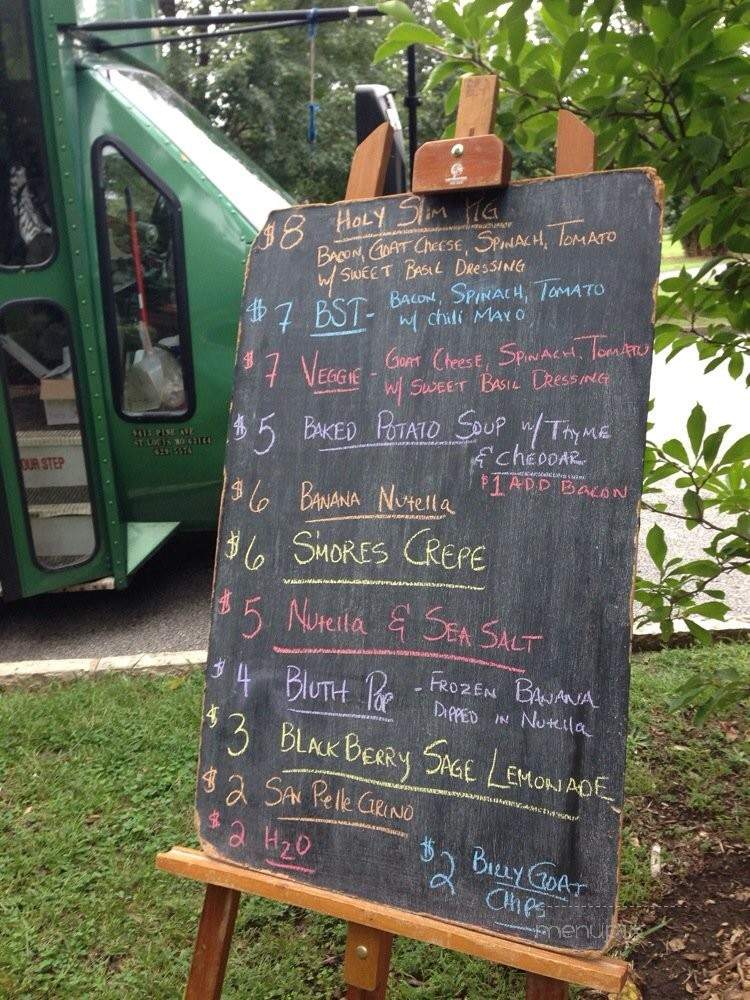 $8 HOLY SLIM PIG
BACON, GOAT CHEESE, SPINACH, TOMATO
W/ SWEET BASIL DRESSING
$7 BST- BACON, SPINACH, TOMATO
w/ chili MAYO
$7 VEGGIE - GOAT CHEESE, SPINACH, TOMATO
W/ SWEET BASIL DRESSING
$5 BAKED POTATO SOUP w/ THYME
& CHEDDAR
$1 ADD BACON
$6 BANANA Nutella
$6 S'MORES CREPE
$5 Nutella & SEA SALT
$4 BLUTH POP - FROZEN BANANA
DIPPED IN Nutella
$3 BLACKBERRY SAGE LEMONADE
$2 SAN PElle GRINO
$2 H2O
$2 BILLY GOAT
CHIPS
9413 PINE AVE
ST LOUIS MO 63144
OUR STEP
menupix